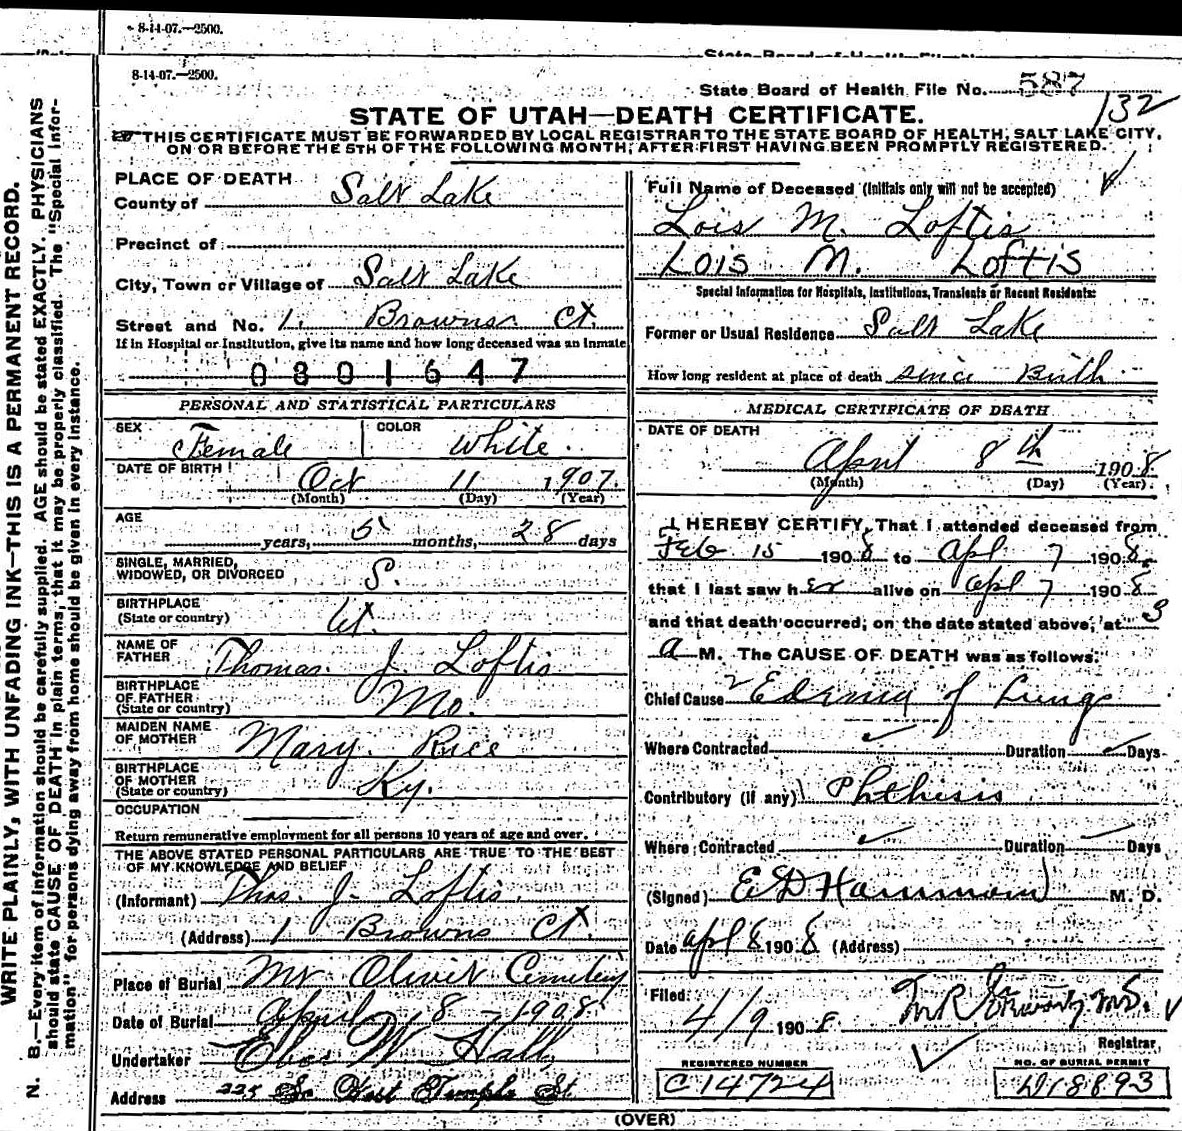 8-14-07.—2500.
8-14-07.—2500.
State Board of Health File No. 587
132
STATE OF UTAH—DEATH CERTIFICATE.
THIS CERTIFICATE MUST BE FORWARDED BY LOCAL REGISTRAR TO THE STATE BOARD OF HEALTH, SALT LAKE CITY,
ON OR BEFORE THE 5TH OF THE FOLLOWING MONTH, AFTER FIRST HAVING BEEN PROMPTLY REGISTERED.
WRITE PLAINLY, WITH UNFADING INK—THIS IS A PERMANENT RECORD.
N. B.—Every item of information should be carefully supplied. AGE should be stated EXACTLY. PHYSICIANS
should state CAUSE OF DEATH in plain terms, that it may be properly classified. The "Special Infor-
mation" for persons dying away from home should be given in every instance.
PLACE OF DEATH
County of Salt Lake
Precinct of
City, Town or Village of Salt Lake
Street and No. 1. Browns Ct.
If in Hospital or Institution, give its name and how long deceased was an inmate
0801647
PERSONAL AND STATISTICAL PARTICULARS
SEX Female COLOR White.
DATE OF BIRTH Oct 11 1907.
(Month) (Day) (Year)
AGE years, 5 months, 28 days
SINGLE, MARRIED,
WIDOWED, OR DIVORCED S.
BIRTHPLACE
(State or country) Ut.
NAME OF
FATHER Thomas J. Loftis
BIRTHPLACE
OF FATHER
(State or country) Mo.
MAIDEN NAME
OF MOTHER Mary Rice
BIRTHPLACE
OF MOTHER
(State or country) Ky.
OCCUPATION
Return remunerative employment for all persons 10 years of age and over.
THE ABOVE STATED PERSONAL PARTICULARS ARE TRUE TO THE BEST
OF MY KNOWLEDGE AND BELIEF
(Informant) Thos. J. Loftis.
(Address) 1 Browns Ct.
Place of Burial Mt Olivet Cemetery
Date of Burial April 8 - 1908
Undertaker Eber W Hall
Address 225 So West Temple St.
Full Name of Deceased (Initials only will not be accepted)
Lois M. Loftis
Lois M. Loftis
Special Information for Hospitals, Institutions, Transients or Recent Residents:
Former or Usual Residence Salt Lake
How long resident at place of death since Birth
MEDICAL CERTIFICATE OF DEATH
DATE OF DEATH
April 8th 1908.
(Month) (Day) (Year)
I HEREBY CERTIFY, That I attended deceased from
Feb 15 1908 to Apl 7 1908,
that I last saw her alive on Apl 7 1908
and that death occurred, on the date stated above, at 3
a M. The CAUSE OF DEATH was as follows:
Chief Cause Edema of Lungs
Where Contracted Duration Days
Contributory (if any) Phthisis
Where Contracted Duration Days
(Signed) E D Hammond M. D.
Date Apl 8 1908 (Address)
Filed 4/9 1908.
Registrar,
REGISTERED NUMBER
C14724
NO. OF BURIAL PERMIT
D18893
(OVER)